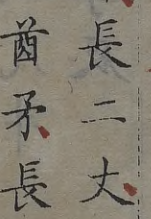 長二丈
酋矛長